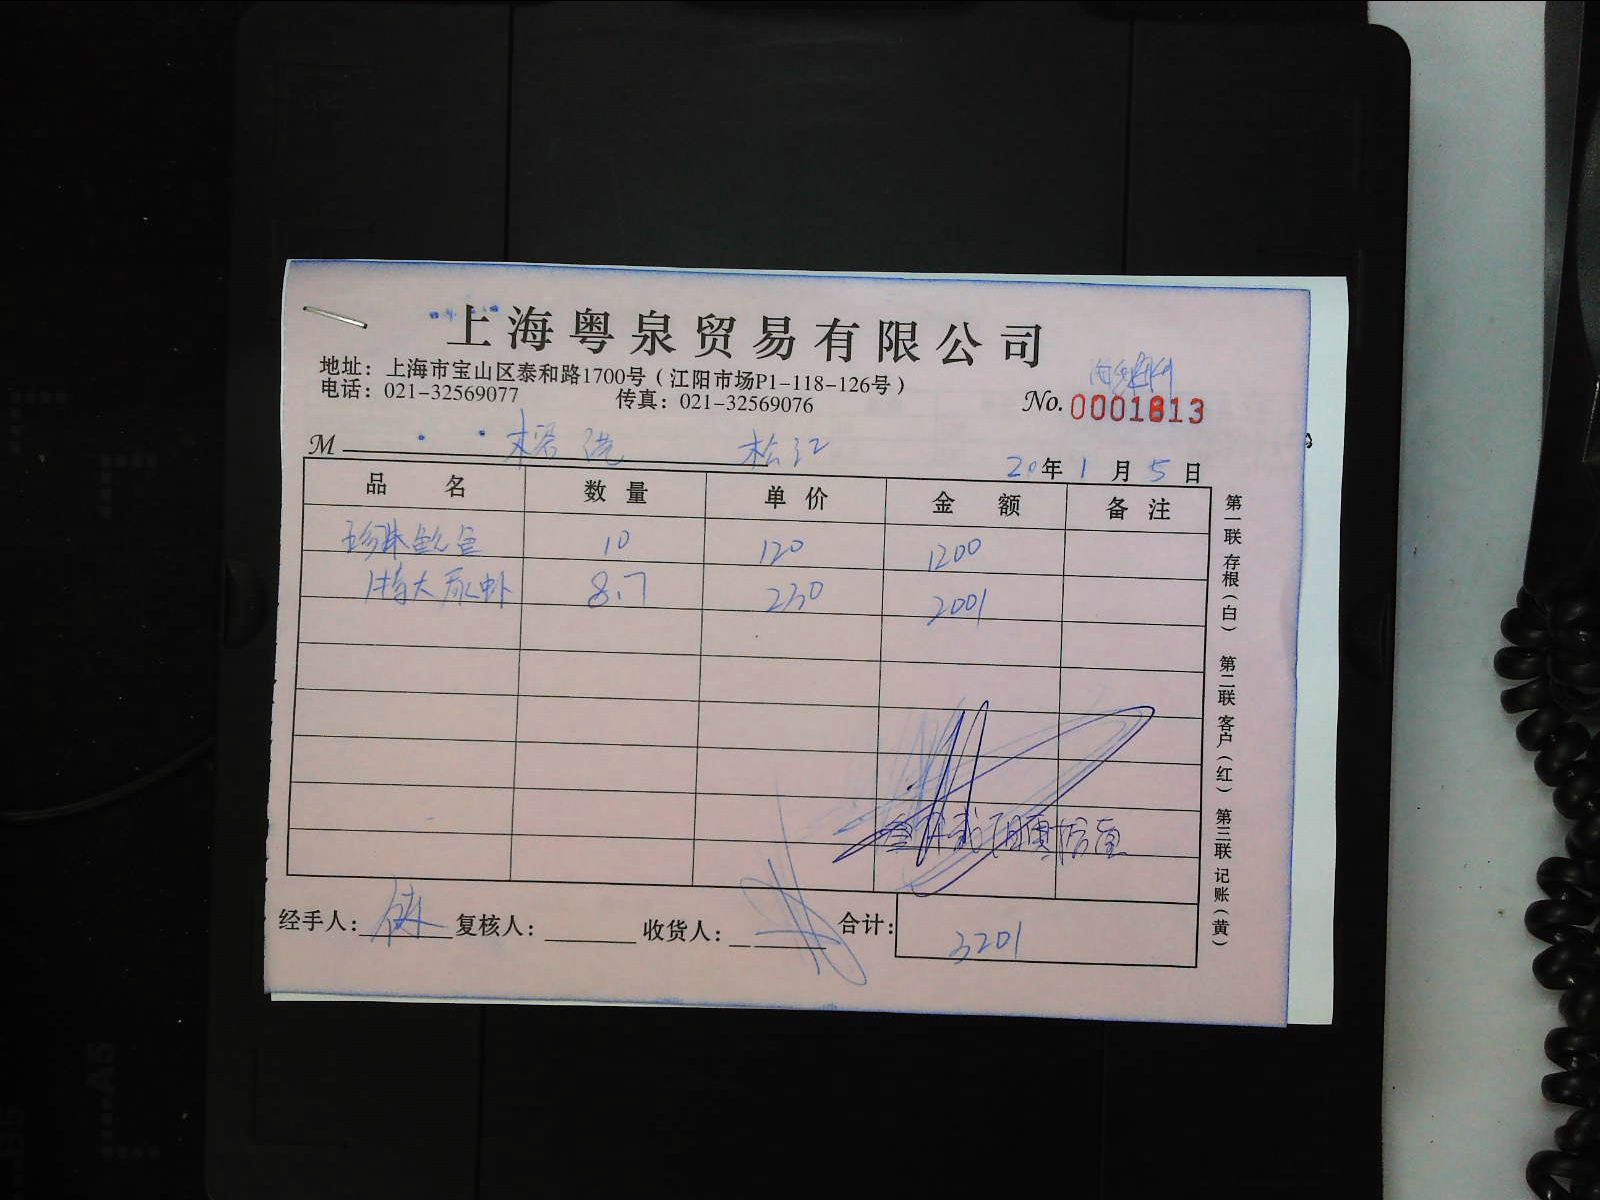 上海粤泉贸易有限公司
地址：上海市宝山区泰和路1700号（江阳市场P1-118-126号）
电话：021-32569077 传真：021-32569076
No. 0001813
M 松江
20年1月5日
品名 数量 单价 金额 备注
珍珠鲍鱼 10 120 1200
特大尿虾 8.7 230 2001
第一联 存根（白） 第二联 客户（红） 第三联 记账（黄）
经手人： 复核人： 收货人： 合计：3201